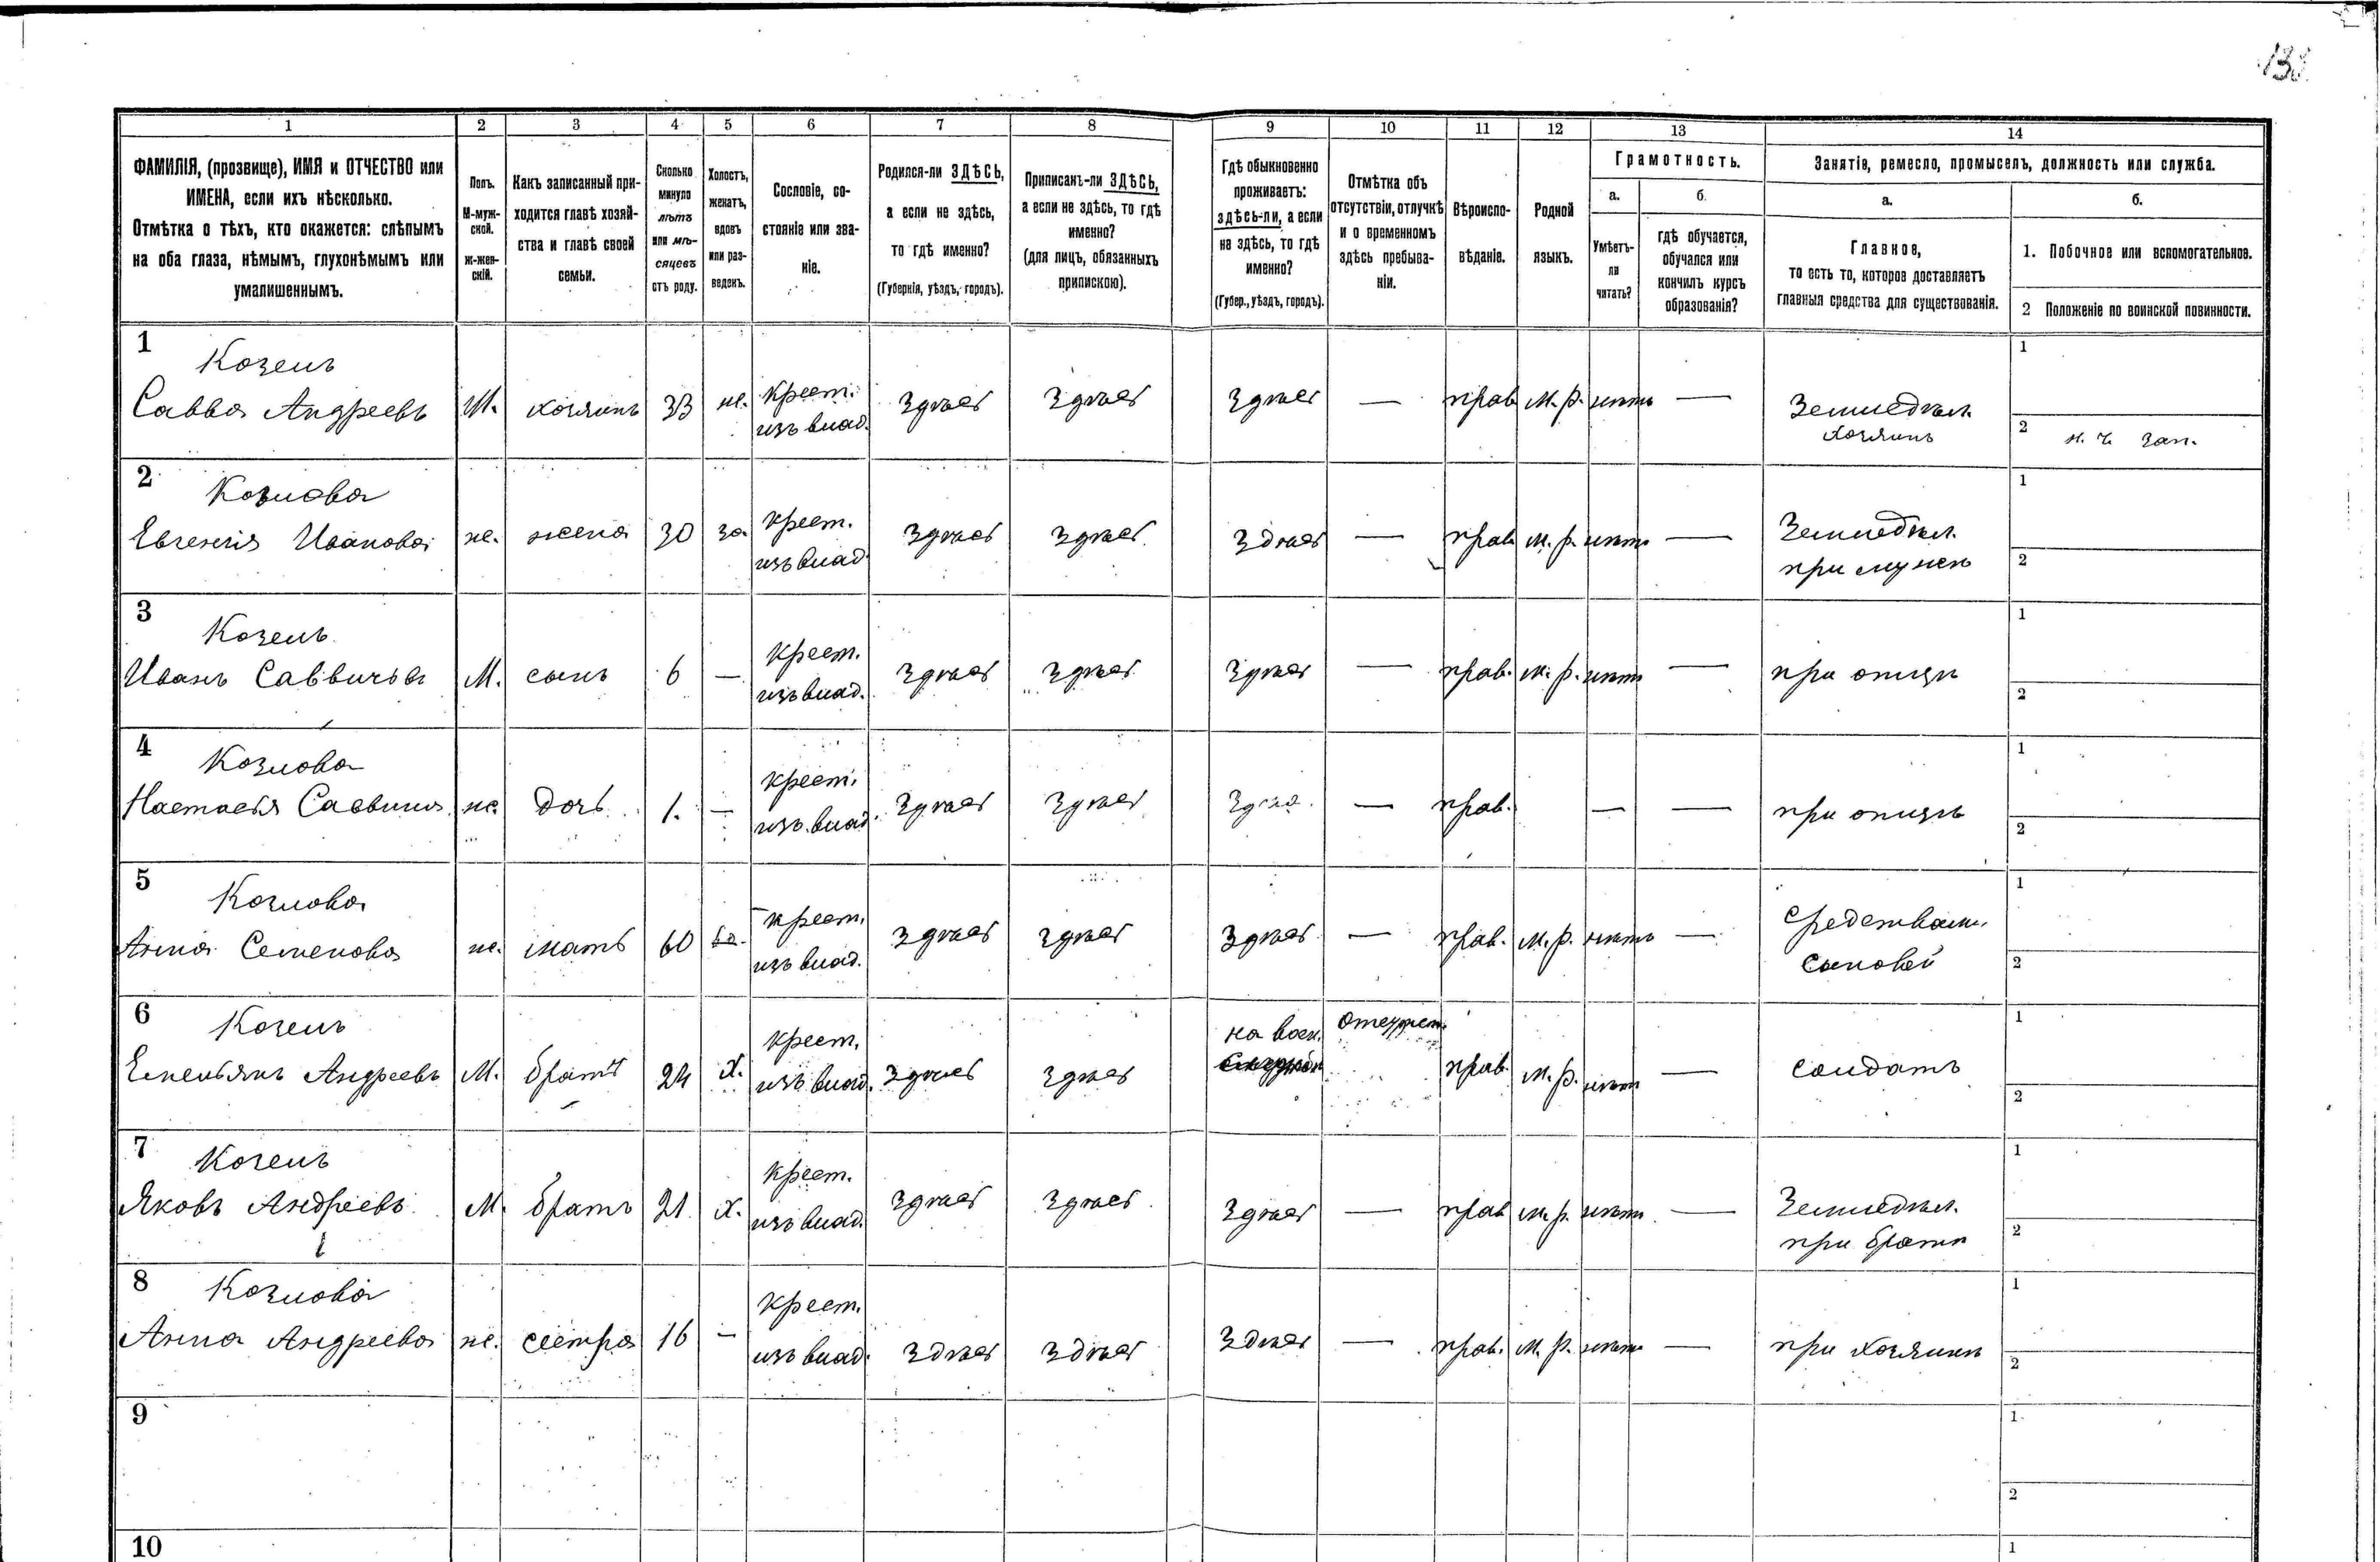 133
1 2 3 4 5 6 7 8 9 10 11 12 13 14
ФАМИЛІЯ, (прозвище), ИМЯ и ОТЧЕСТВО или
ИМЕНА, если ихъ нѣсколько.
Отмѣтка о тѣхъ, кто окажется: слѣпымъ
на оба глаза, нѣмымъ, глухонѣмымъ или
умалишеннымъ.
Полъ.
М-муж-
ской.
Ж-жен-
скій.
Какъ записанный при-
ходится главѣ хозяй-
ства и главѣ своей
семьи.
Сколько
минуло
лѣтъ
или мѣ-
сяцевъ
отъ роду.
Холостъ,
женатъ,
вдовъ
или раз-
веденъ.
Сословіе, со-
стояніе или зва-
ніе.
Родился-ли ЗДѢСЬ,
а если не здѣсь,
то гдѣ именно?
(Губернія, уѣздъ, городъ).
Приписанъ-ли ЗДѢСЬ,
а если не здѣсь, то гдѣ
именно?
(для лицъ, обязанныхъ
припискою).
Гдѣ обыкновенно
проживаетъ:
здѣсь-ли, а если
не здѣсь, то гдѣ
именно?
(Губер., уѣздъ, городъ).
Отмѣтка объ
отсутствіи, отлучкѣ
и о временномъ
здѣсь пребыва-
ніи.
Вѣроиспо-
вѣданіе.
Родной
языкъ.
Грамотность.
а.
Умѣетъ-
ли
читать?
б.
гдѣ обучается,
обучался или
кончилъ курсъ
образованія?
Занятіе, ремесло, промыселъ, должность или служба.
а.
Главное,
то есть то, которое доставляетъ
главныя средства для существованія.
б.
1. Побочное или вспомогательное.
2 Положеніе по воинской повинности.
1
Козелъ
Савва Андреевъ М. хозяинъ 33 ж. крест. изъ влад. Здѣсь Здѣсь Здѣсь — прав. м.р. нѣтъ — Земледѣл. хозяинъ
1
2 н. ч. зап.
2
Козлова
Евгенія Иванова ж. жена 30 за крест. изъ влад. Здѣсь Здѣсь Здѣсь — прав. м.р. нѣтъ — Земледѣл. при мужѣ
1
2
3
Козелъ
Иванъ Саввичъ М. сынъ 6 — крест. изъ влад. Здѣсь Здѣсь Здѣсь — прав. м.р. нѣтъ — при отцѣ
1
2
4
Козлова
Настасья Саввина ж. дочь 1. — крест. изъ влад. Здѣсь Здѣсь Здѣсь — прав. — — при отцѣ
1
2
5
Козлова
Анна Семенова ж. мать 60 крест. изъ влад. Здѣсь Здѣсь Здѣсь — прав. м.р. нѣтъ — средствами сыновей
1
2
6
Козелъ
Емельянъ Андреевъ М. братъ 24 Х. крест. изъ влад. Здѣсь Здѣсь на воен. службѣ прав. м.р. нѣтъ — солдатъ
1
2
7
Козелъ
Яковъ Андреевъ М. братъ 21 х. крест. изъ влад. Здѣсь Здѣсь Здѣсь — прав м.р. нѣтъ — Земледѣл. при братѣ
1
2
8
Козлова
Анна Андреева ж. сестра 16 — крест. изъ влад. Здѣсь Здѣсь Здѣсь — прав. м.р. нѣтъ — при хозяинѣ
1
2
9
1
2
10
1